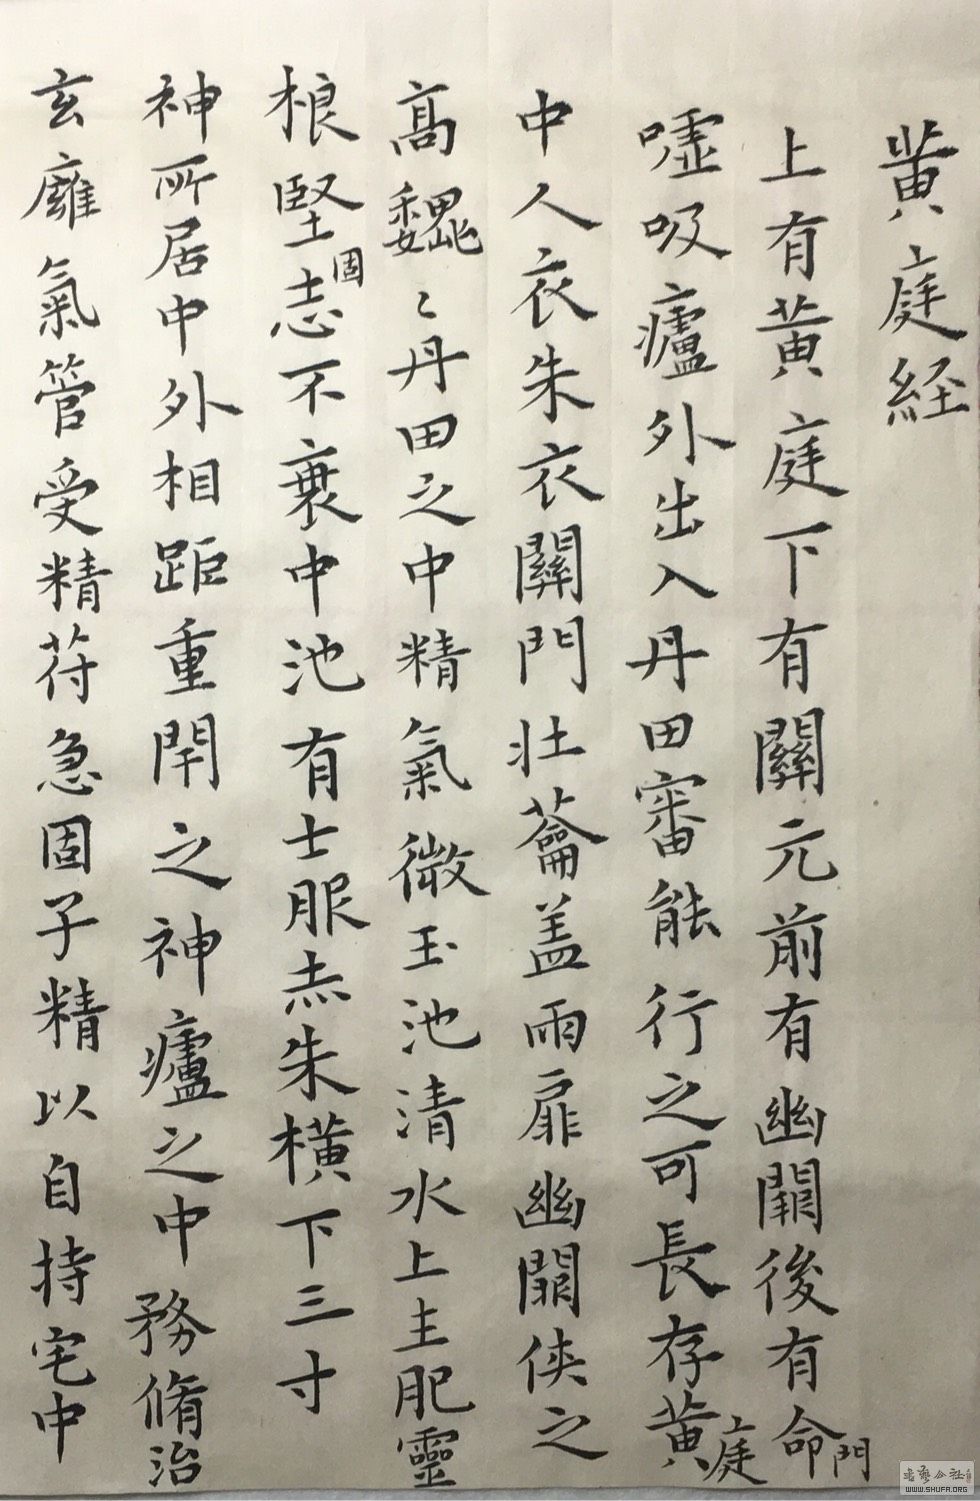 黄庭経
上有黄庭下有關元前有幽闕後有命門
嘘吸廬外出入丹田審能行之可長存黄庭
中人衣朱衣關門壮蘥盖兩扉幽闕侠之
高巍〻丹田之中精氣微玉池清水上生肥靈
根堅固志不衰中池有士服赤朱横下三寸
神所居中外相距重閇之神廬之中務脩治
玄廱氣管受精苻急固子精以自持宅中
書藝公社
WWW.SHUFA.ORG